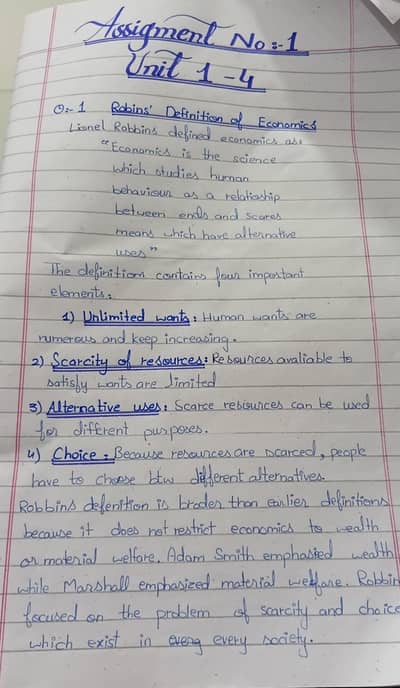 Assigment No:-1
Unit 1-4
Q:-1 Robins' Definition of Economics
Lionel Robbins defined economics as:
"Economics is the science
which studies human
behaviour as a relatioship
between ends and scares
means which have alternative
uses"
The definition contains four important
elements.
1) Unlimited wants: Human wants are
numerous and keep increasing.
2) Scarcity of resources: Resources avaliable to
satisfy wants are limited
3) Alternative uses: Scarce resources can be used
for different purposes.
4) Choice: Because resources are scarced, people
have to choose btw different alternatives.
Robbins defenition is broder than earlier definitions
because it does not restrict economics to wealth
or material welfare. Adam Smith emphasied wealth
while Marshall emphasized material welfare. Robbin
focused on the problem of scarcity and choice
which exist in every society.